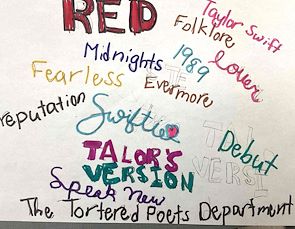 RED
Taylor Swift
Folklore
Midnights
1989
Lover
Fearless
Evermore
reputation
Swiftie
Debut
TALOR'S
VERSION
VERSI
Speek New
The Tortered Poets Department